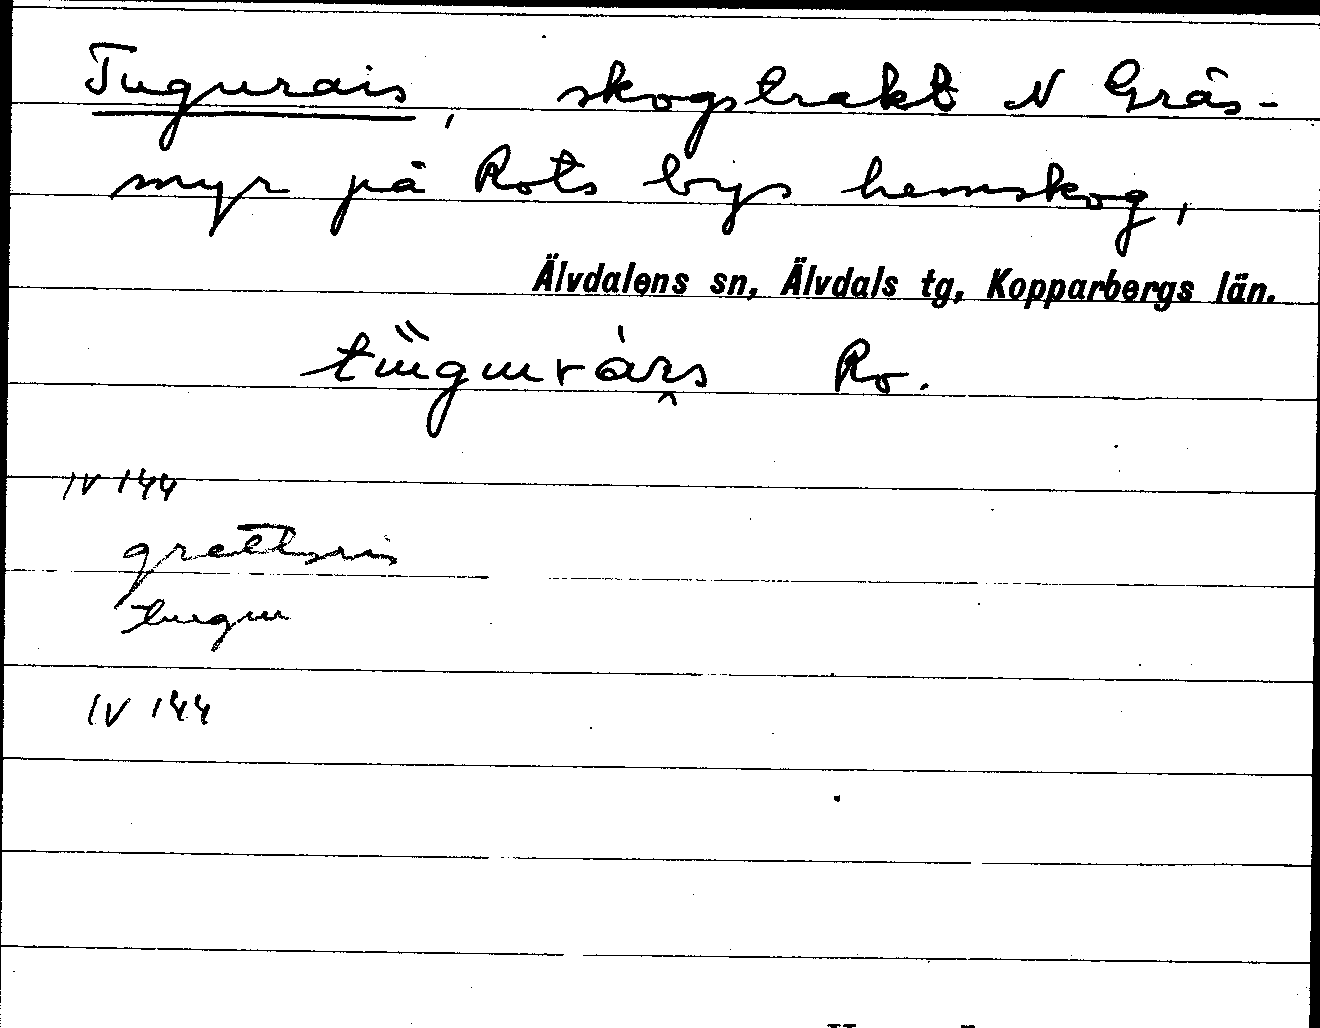 Tugurais, skogstrakt N Gräs-
myr på Rots bys hemskog,
Älvdalens sn, Älvdals tg, Kopparbergs län.
Ro.
IV 144
IV 144